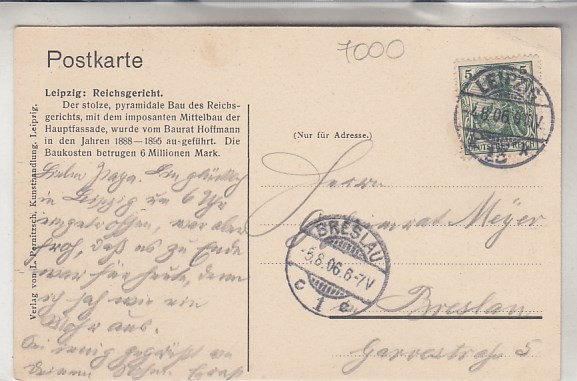 Postkarte
7000
Leipzig: Reichsgericht.
Der stolze, pyramidale Bau des Reichs-
gerichts, mit dem imposanten Mittelbau der
Hauptfassade, wurde vom Baurat Hoffmann
in den Jahren 1888—1895 au-geführt. Die
Baukosten betrugen 6 Millionen Mark.
(Nur für Adresse.)
Verlag von L. Pernitzsch, Kunsthandlung, Leipzig.
5 5
DEUTSCHES REICH
LEIPZIG
4.8.06.
BRESLAU
5.8.06.6-7V.
c 1 c
Lieber Papa. Bin glücklich
in Leipzig um 6 Uhr
eingetroffen, war aber
froh, daß es zu Ende
war für heute, denn
ich sah wie ein
Mohr aus.
Sei innig gegrüßt von
Deinem Sohn. Ernst
Herrn
Geheimrat Meyer
Breslau
5